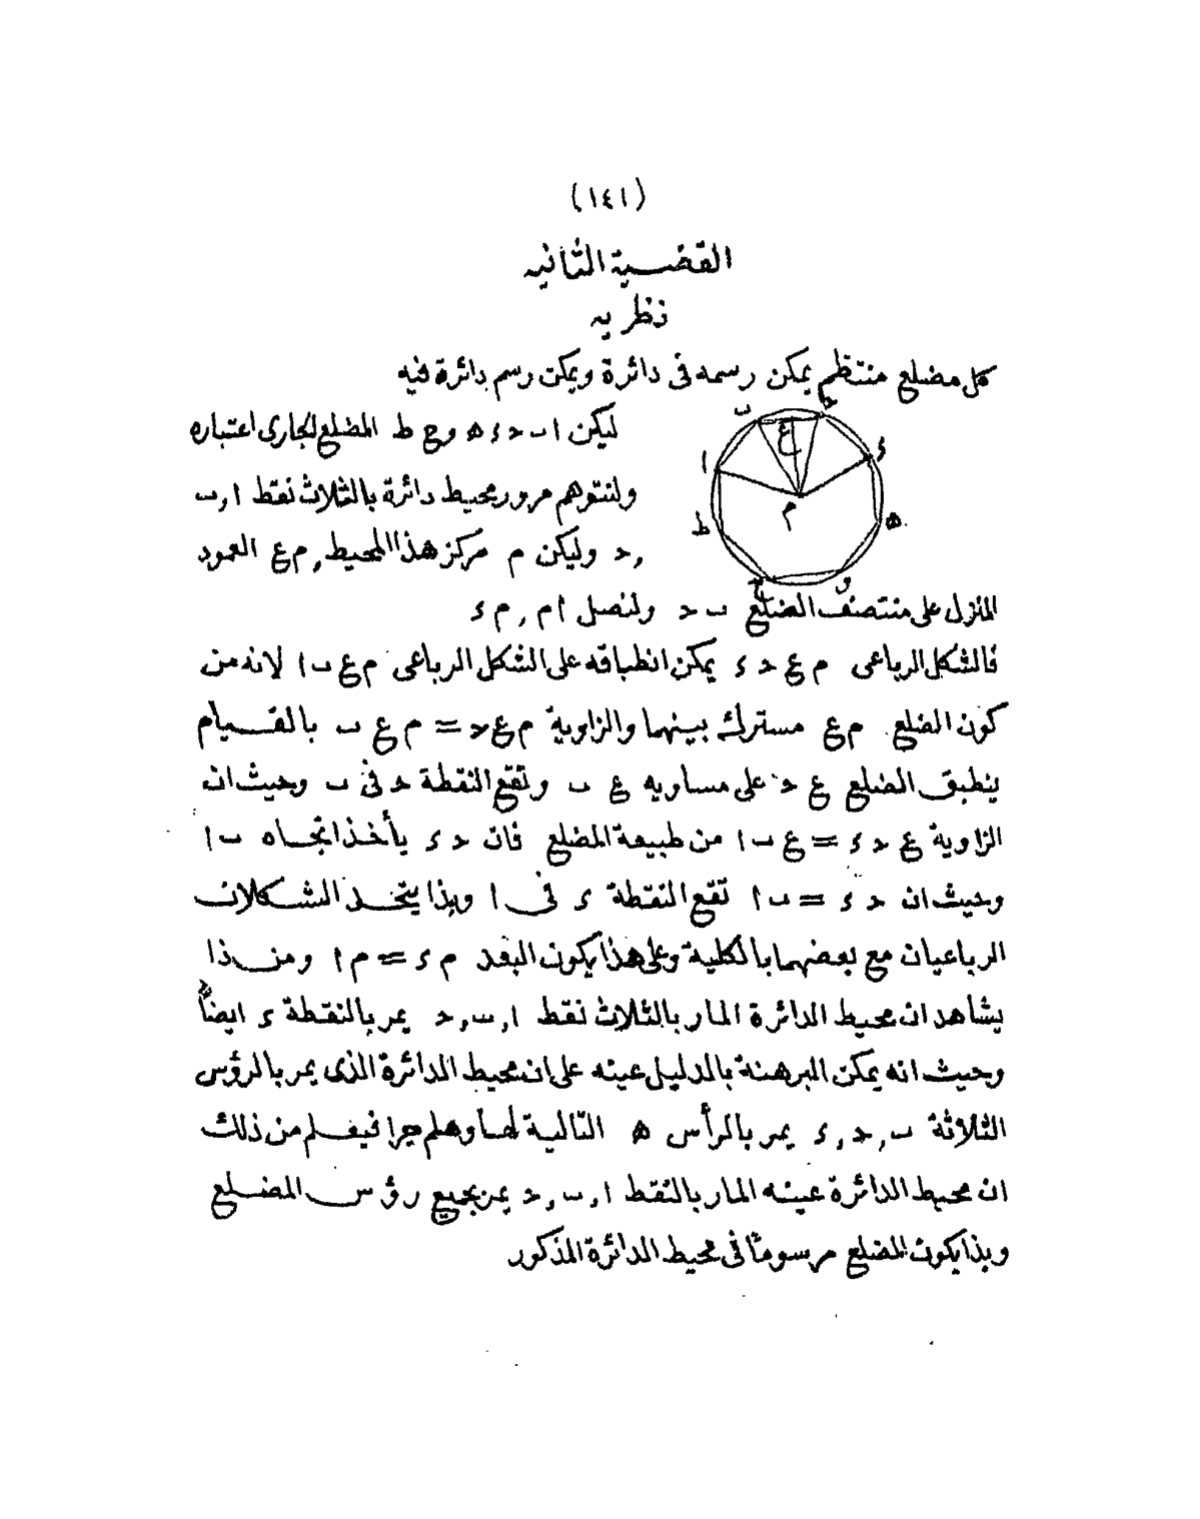 (١٤١)
القضية الثانيه
نظريه
كل مضلع منتظم يمكن رسمه فى دائرة ويمكن رسم دائرة فيه
ليكن ا ب ح د ه و ج ط المضلع الجارى اعتباره
ولنتوهم مرور محيط دائرة بالثلاث نقط ا , ب
, ح وليكن م مركز هذا المحيط , م ع العمود
المنزل على منتصف الضلع ب ح ولنصل ا م , م د
فالشكل الرباعى م ع ح د يمكن انطباقه على الشكل الرباعى م ع ب ا لانه من
كون الضلع م ع مسترك بينهما والزاوية م ع ح = م ع ب بالقيام
ينطبق الضلع ع ح على مساويه ع ب وتقع النقطة ح فى ب وحيث ان
الزاوية ع ح د = ع ب ا من طبيعة المضلع فان ح د يأخذ اتجاه ب ا
وحيث ان ح د = ب ا تقع النقطة د فى ا وبذا يتحد الشكلان
الرباعيان مع بعضهما بالكلية وعلى هذا يكون البعد م د = م ا ومن ذا
يشاهد ان محيط الدائرة المار بالثلاث نقط ا , ب , ح يمر بالنقطة د ايضاً
وحيث انه يمكن البرهنة بالدليل عينه على ان محيط الدائرة الذى يمر بالرؤس
الثلاثة ب , ح , د يمر بالرأس ه التالية لها وهلم جرا فيعلم من ذلك
ان محيط الدائرة عينه المار بالنقط ا , ب , ح يمر بجميع رؤس المضلع
وبذا يكون المضلع مرسوما فى محيط الدائرة المذكور
ا
ب
ح
د
ه
و
ج
ط
ع
م